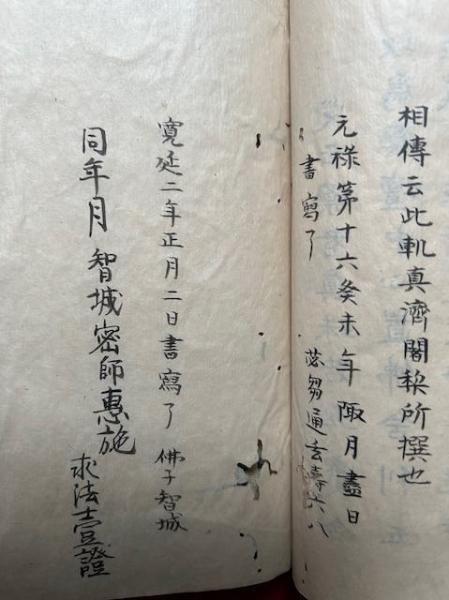 相傳云此軌真濟闍梨所撰也
元祿第十六癸未年陬月盡日
書寫了
苾芻通玄壽六八
寛延二年正月二日書寫了 佛子智城
同年月智城密師惠施
求法士壹證